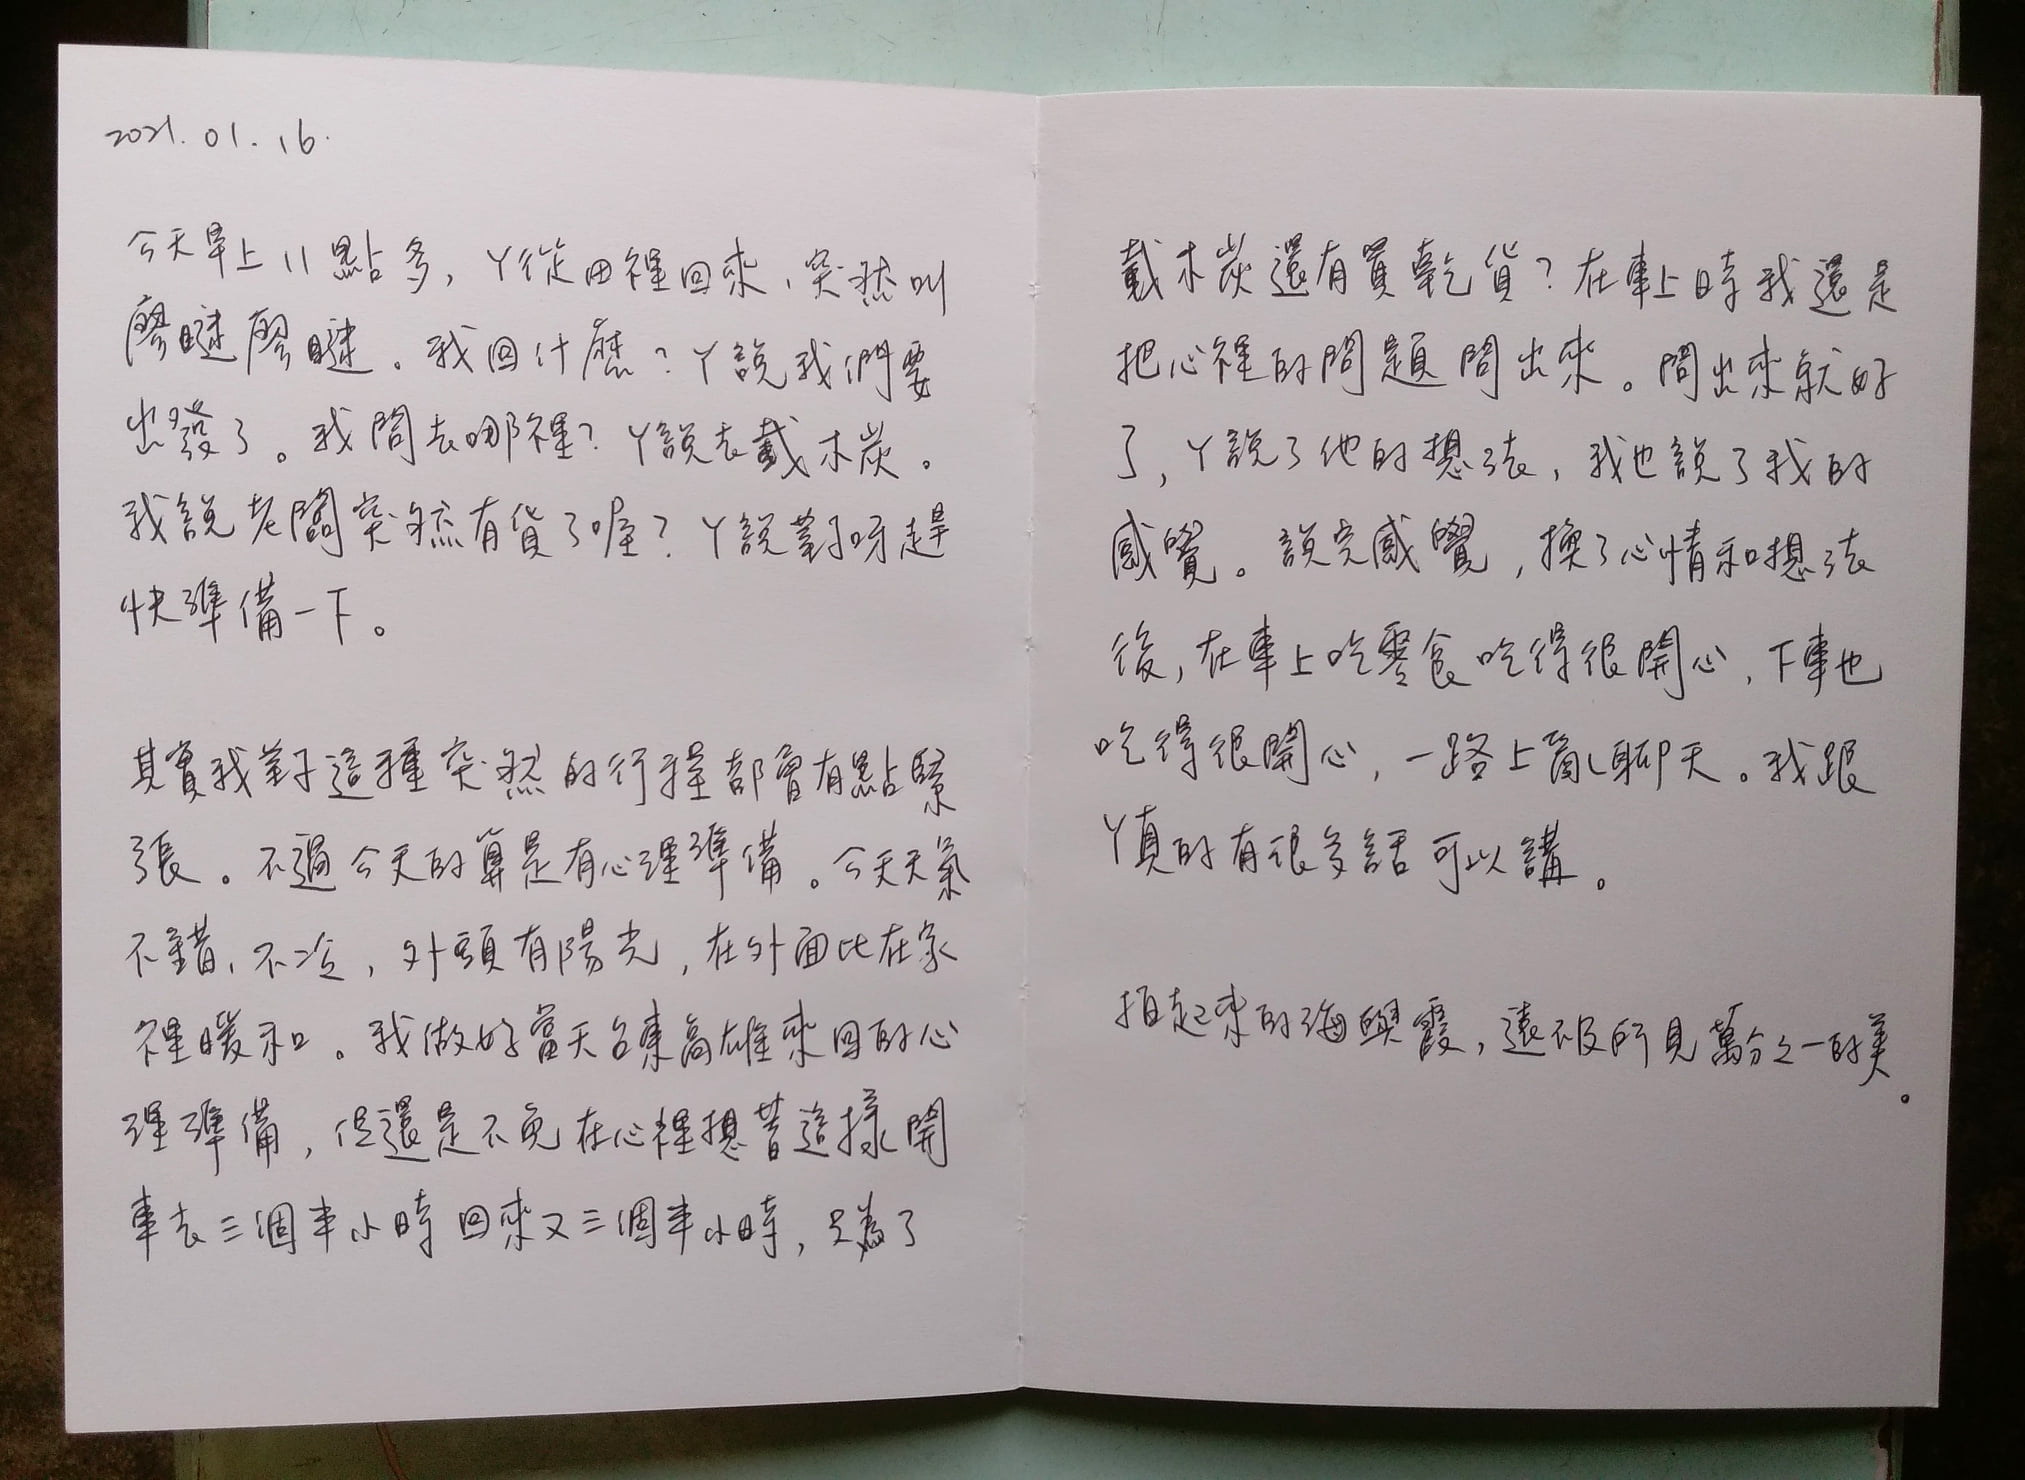 2021.01.16.
今天早上11點多，ㄚ從田裡回來、突然叫
廖瞇廖瞇。我回什麼？ㄚ說我們要
出發了。我問去哪裡？ㄚ說去戴木炭。
我說老闆突然有貨了喔？ㄚ說對呀趕
快準備一下。
其實我對這種突然的行程都會有點緊
張。不過今天的算是有心理準備。今天天氣
不錯、不冷，外頭有陽光，在外面比在家
裡暖和。我做好當天台東高雄來回的心
理準備，但還是不免在心裡想著這樣開
車去三個半小時回來又三個半小時，只為了
戴木炭還有買乾貨？在車上時我還是
把心裡的問題問出來。問出來就好
了，ㄚ說了他的想法，我也說了我的
感覺。說完感覺，換了心情和想法
後，在車上吃零食吃得很開心，下車也
吃得很開心，一路上亂聊天。我跟
ㄚ真的有很多話可以講。
拍起來的海與霞，遠不及所見萬分之一的美。